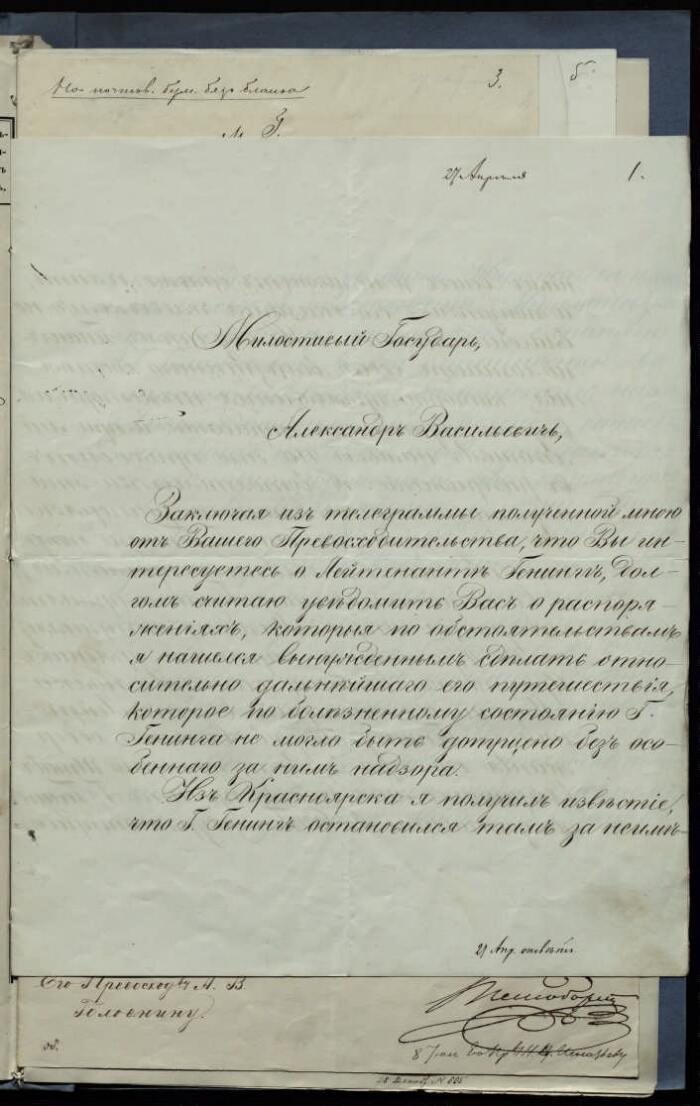 На почтов. бум. безъ бланка
3.
5.
27 Апрѣля
1.
Милостивый Государь,
Александръ Васильевичъ,
Заключая изъ телеграммы полученной мною
отъ Вашего Превосходительства, что Вы ин-
тересуетесь о Лейтенантѣ Генингѣ, дол-
гомъ считаю увѣдомить Васъ о распоря-
женіяхъ, которыя по обстоятельствамъ
я нашелся вынужденнымъ сдѣлать отно-
сительно дальнѣйшаго его путешествія,
которое по болѣзненному состоянію Г.
Генинга не могло быть допущено безъ осо-
беннаго за нимъ надзора.
Изъ Красноярска я получилъ извѣстіе,
что Г. Генингъ остановился тамъ за неимѣ-
27 Апр.
Его Превосход. А. В.
Головнину.